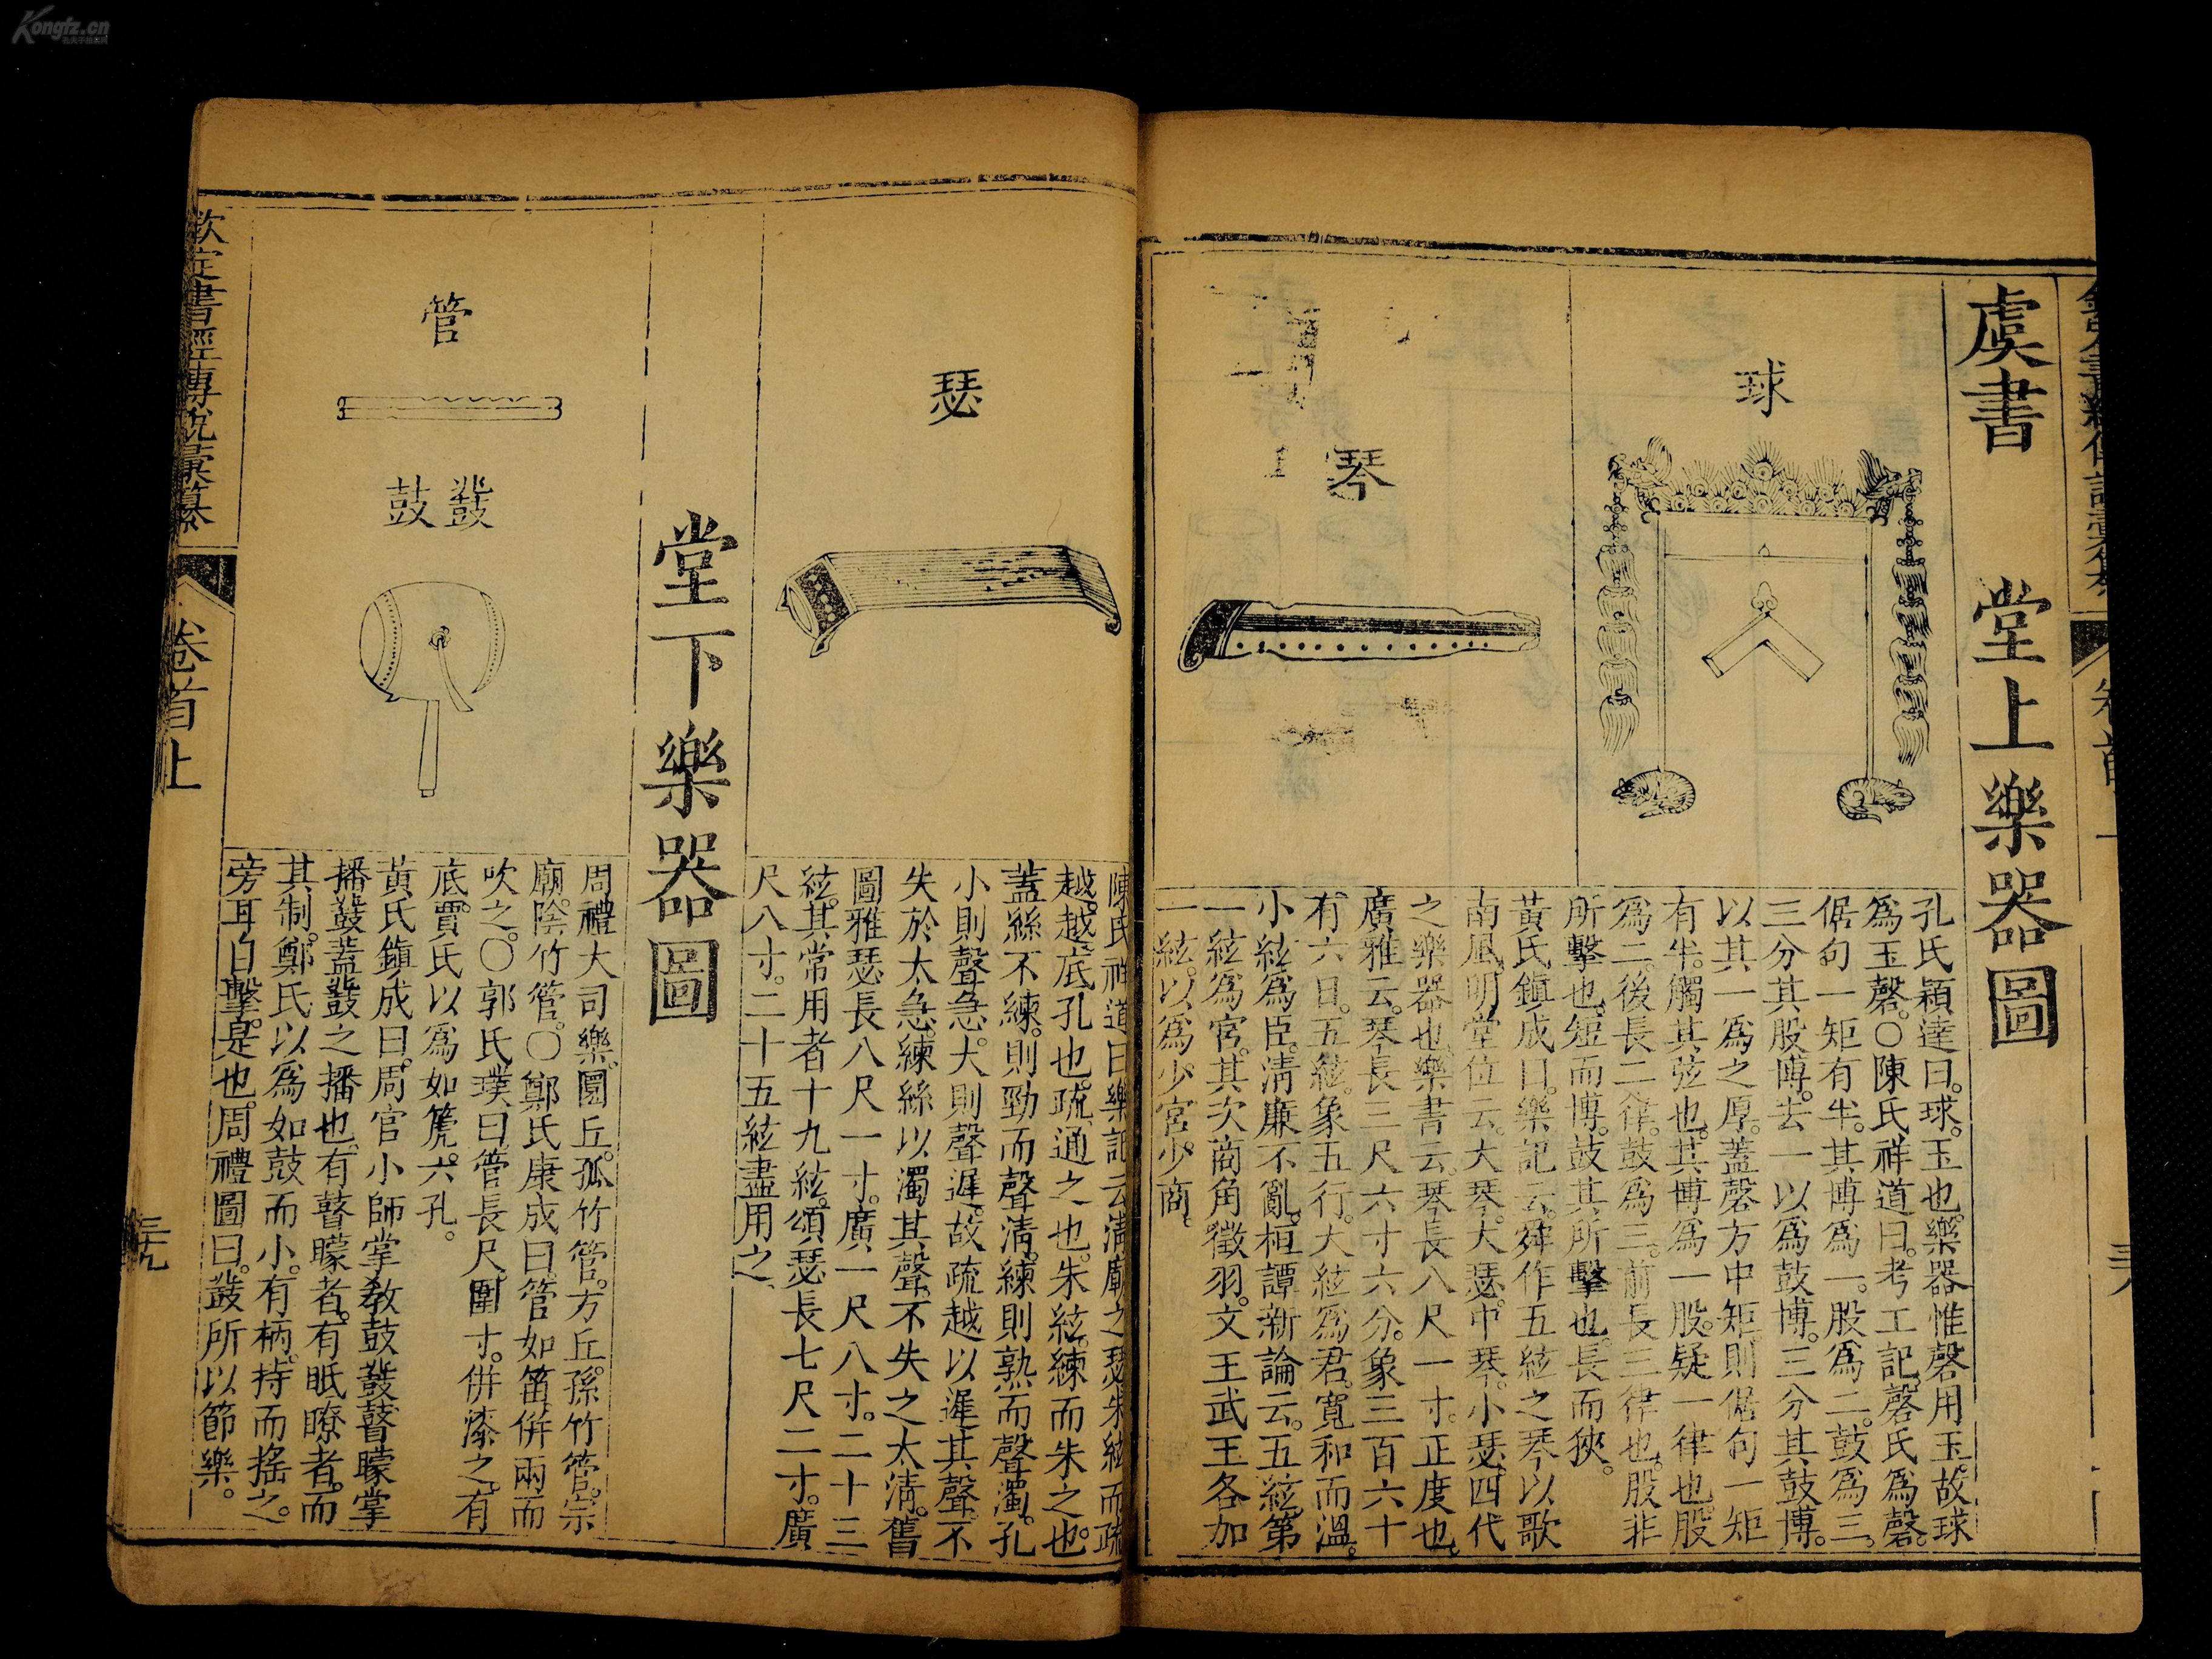 虞書 堂上樂器圖
球
孔氏穎達曰。球。玉也。樂器惟磬用玉。故球
爲玉磬。○陳氏祥道曰。考工記。磬氏爲磬。
倨句一矩有半。其博爲一。股爲二。鼓爲三。
三分其股博。去一以爲鼓博。三分其鼓博。
以其一爲之厚。蓋磬方中矩。則倨句一矩
有半。觸其弦也。其博爲一股。疑一律也。股
爲二。後長二律。鼓爲三。前長三律也。股非
所擊也。短而博。鼓其所擊也。長而狹。
琴
黃氏鎮成曰。樂記云。舜作五絃之琴以歌
南風。明堂位云。大琴。大瑟。中琴。小瑟。四代
之樂器也。樂書云。琴長八尺一寸。正度也。
廣雅云。琴長三尺六寸六分。象三百六十
有六日。五絃。象五行。大絃爲君。寬和而溫。
小絃爲臣。淸廉不亂。桓譚新論云。五絃。第
一絃爲宮。其次商角徵羽。文王武王各加
一絃。以爲少宮少商。
瑟
陳氏祥道曰樂記云淸廟之瑟朱絃而疏
越。越。底孔也。疏。通之也。朱絃。練而朱之也。
蓋絲不練。則勁而聲淸。練則熟而聲濁。孔
小則聲急。大則聲遲。故疏越以遲其聲。不
失於太急。練絲以濁其聲。不失之太淸。舊
圖雅瑟長八尺一寸。廣一尺八寸。二十三
絃。其常用者十九絃。頌瑟長七尺二寸。廣
尺八寸。二十五絃盡用之
堂下樂器圖
管
鼗鼓
周禮大司樂。圜丘。孤竹管。方丘。孫竹管。宗
廟。陰竹管。○鄭氏康成曰管如篴。併兩而
吹之。○郭氏璞曰管長尺。圍寸。併漆之。有
底。賈氏以爲如篪。六孔。
黃氏鎮成曰。周官小師掌教鼓鼗。瞽矇掌
播鼗。蓋鼗之播也。有瞽矇者。有眡瞭者。而
其制。鄭氏以爲如鼓而小。有柄。持而搖之。
旁耳自擊。是也。周禮圖曰。鼗所以節樂。
欽定書經傳說彙纂 卷首上
三九
Kongfz.cn